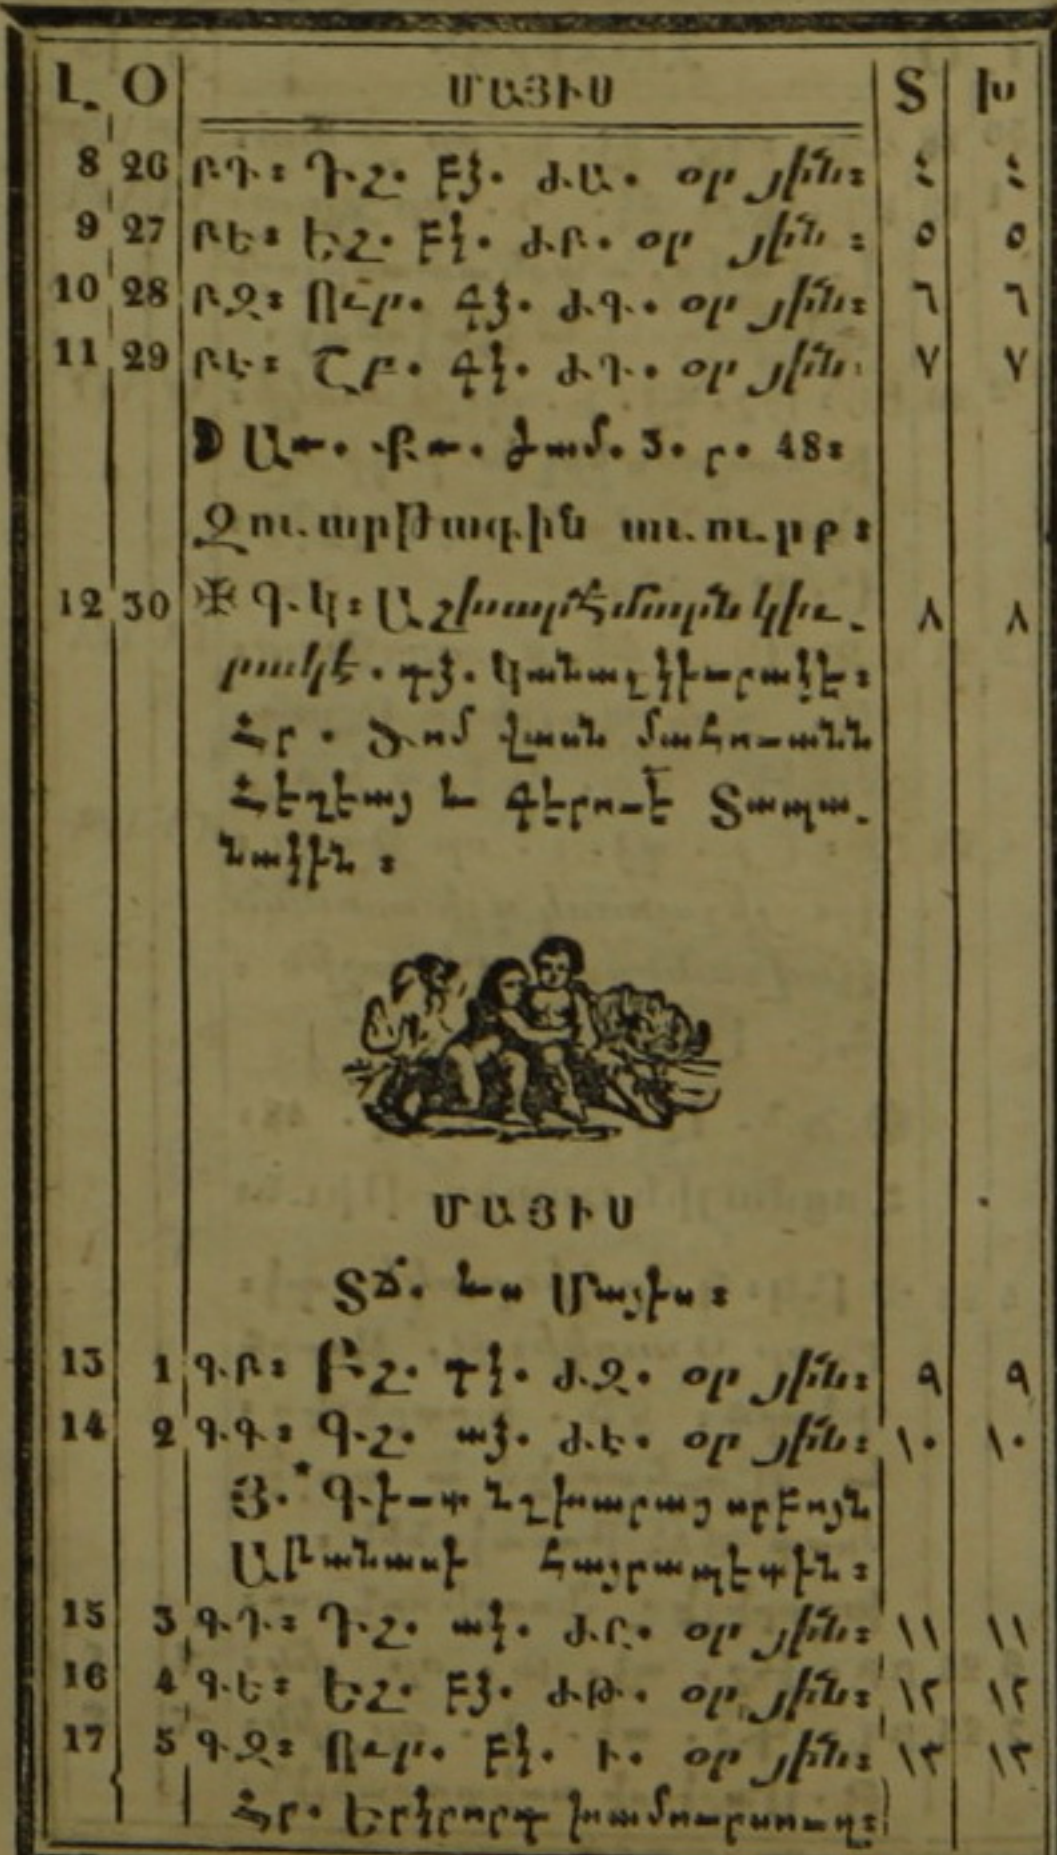 Լ. Օ ՄԱՅԻՍ Տ Խ
8 26 ԲԴ։ ԴՇ. ԲՁ. ԺԱ. օր յին։ ٤ ٤
9 27 ԲԵ։ ԵՇ. ԲԿ. ԺԲ. օր յին։ ٥ ٥
10 28 ԲԶ։ Ուր. ԳՁ. ԺԳ. օր յին։ ٦ ٦
11 29 ԲԷ։ Շբ. ԳԿ. ԺԴ. օր յին։ ٧ ٧
ժամ. 3. ր. 48։
Զուարթագին աւուրք։
12 30 ✠ ԳԿ։ Աշխարհամատրան կիւ- ٨ ٨
րակէ. դձ. Կանաչ կիւրակէ։
Հր. Ծոմ վասն մահուանն
Հէղէայ և գէրուէ Տապա-
նակին։
ՄԱՅԻՍ
ՏՃ. ևս Մայիս։
13 1 ԳԲ։ ԲՇ. դկ. ԺԶ. օր յին։ ٩ ٩
14 2 ԳԳ։ ԳՇ. աձ. ԺԷ. օր յին։ ١٠ ١٠
Յ.* Գիւտ նշխարաց սրբոյն
Աթանասի հայրապետին։
15 3 ԳԴ։ ԴՇ. ակ. ԺԸ. օր յին։ ١١ ١١
16 4 ԳԵ։ ԵՇ. բձ. ԺԹ. օր յին։ ١٢ ١٢
17 5 ԳԶ։ Ուր. բկ. Ի. օր յին։ ١٣ ١٣
Հր. Երկրորդ